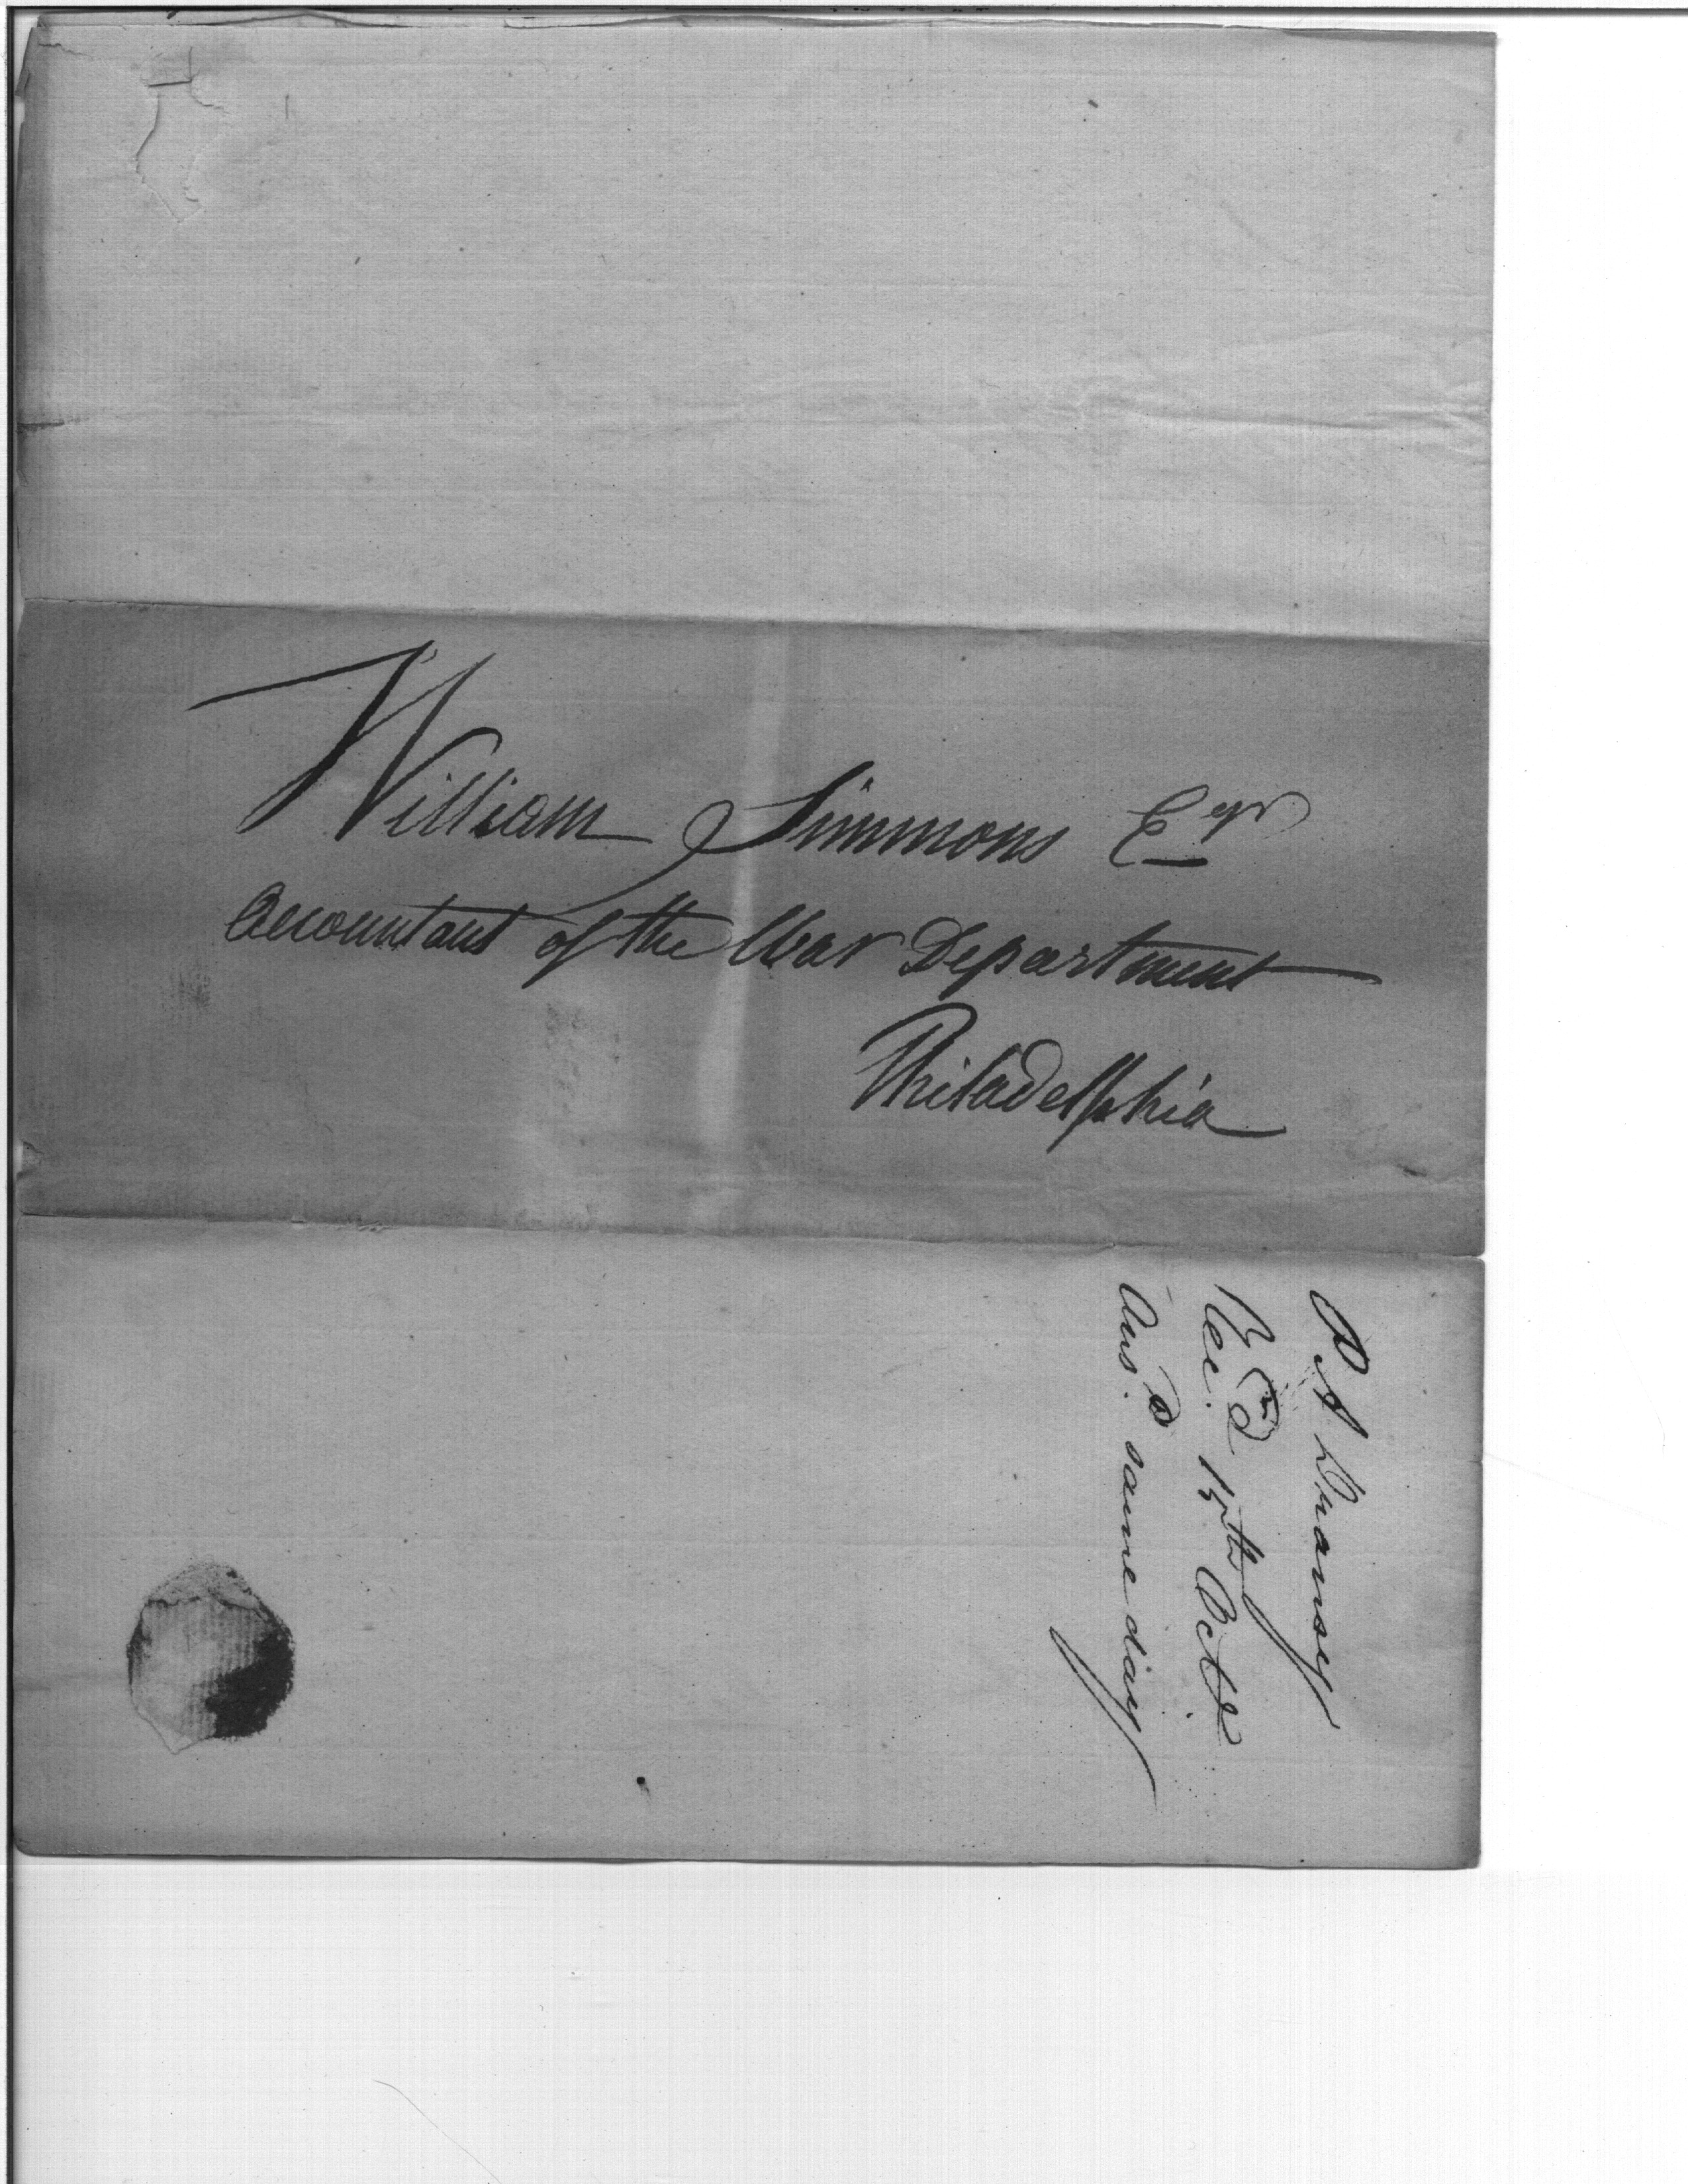 William Simmons Eqr
Accountant of the War Department
Philadelphia
Rec.d 15th Octr
Ans.d same day